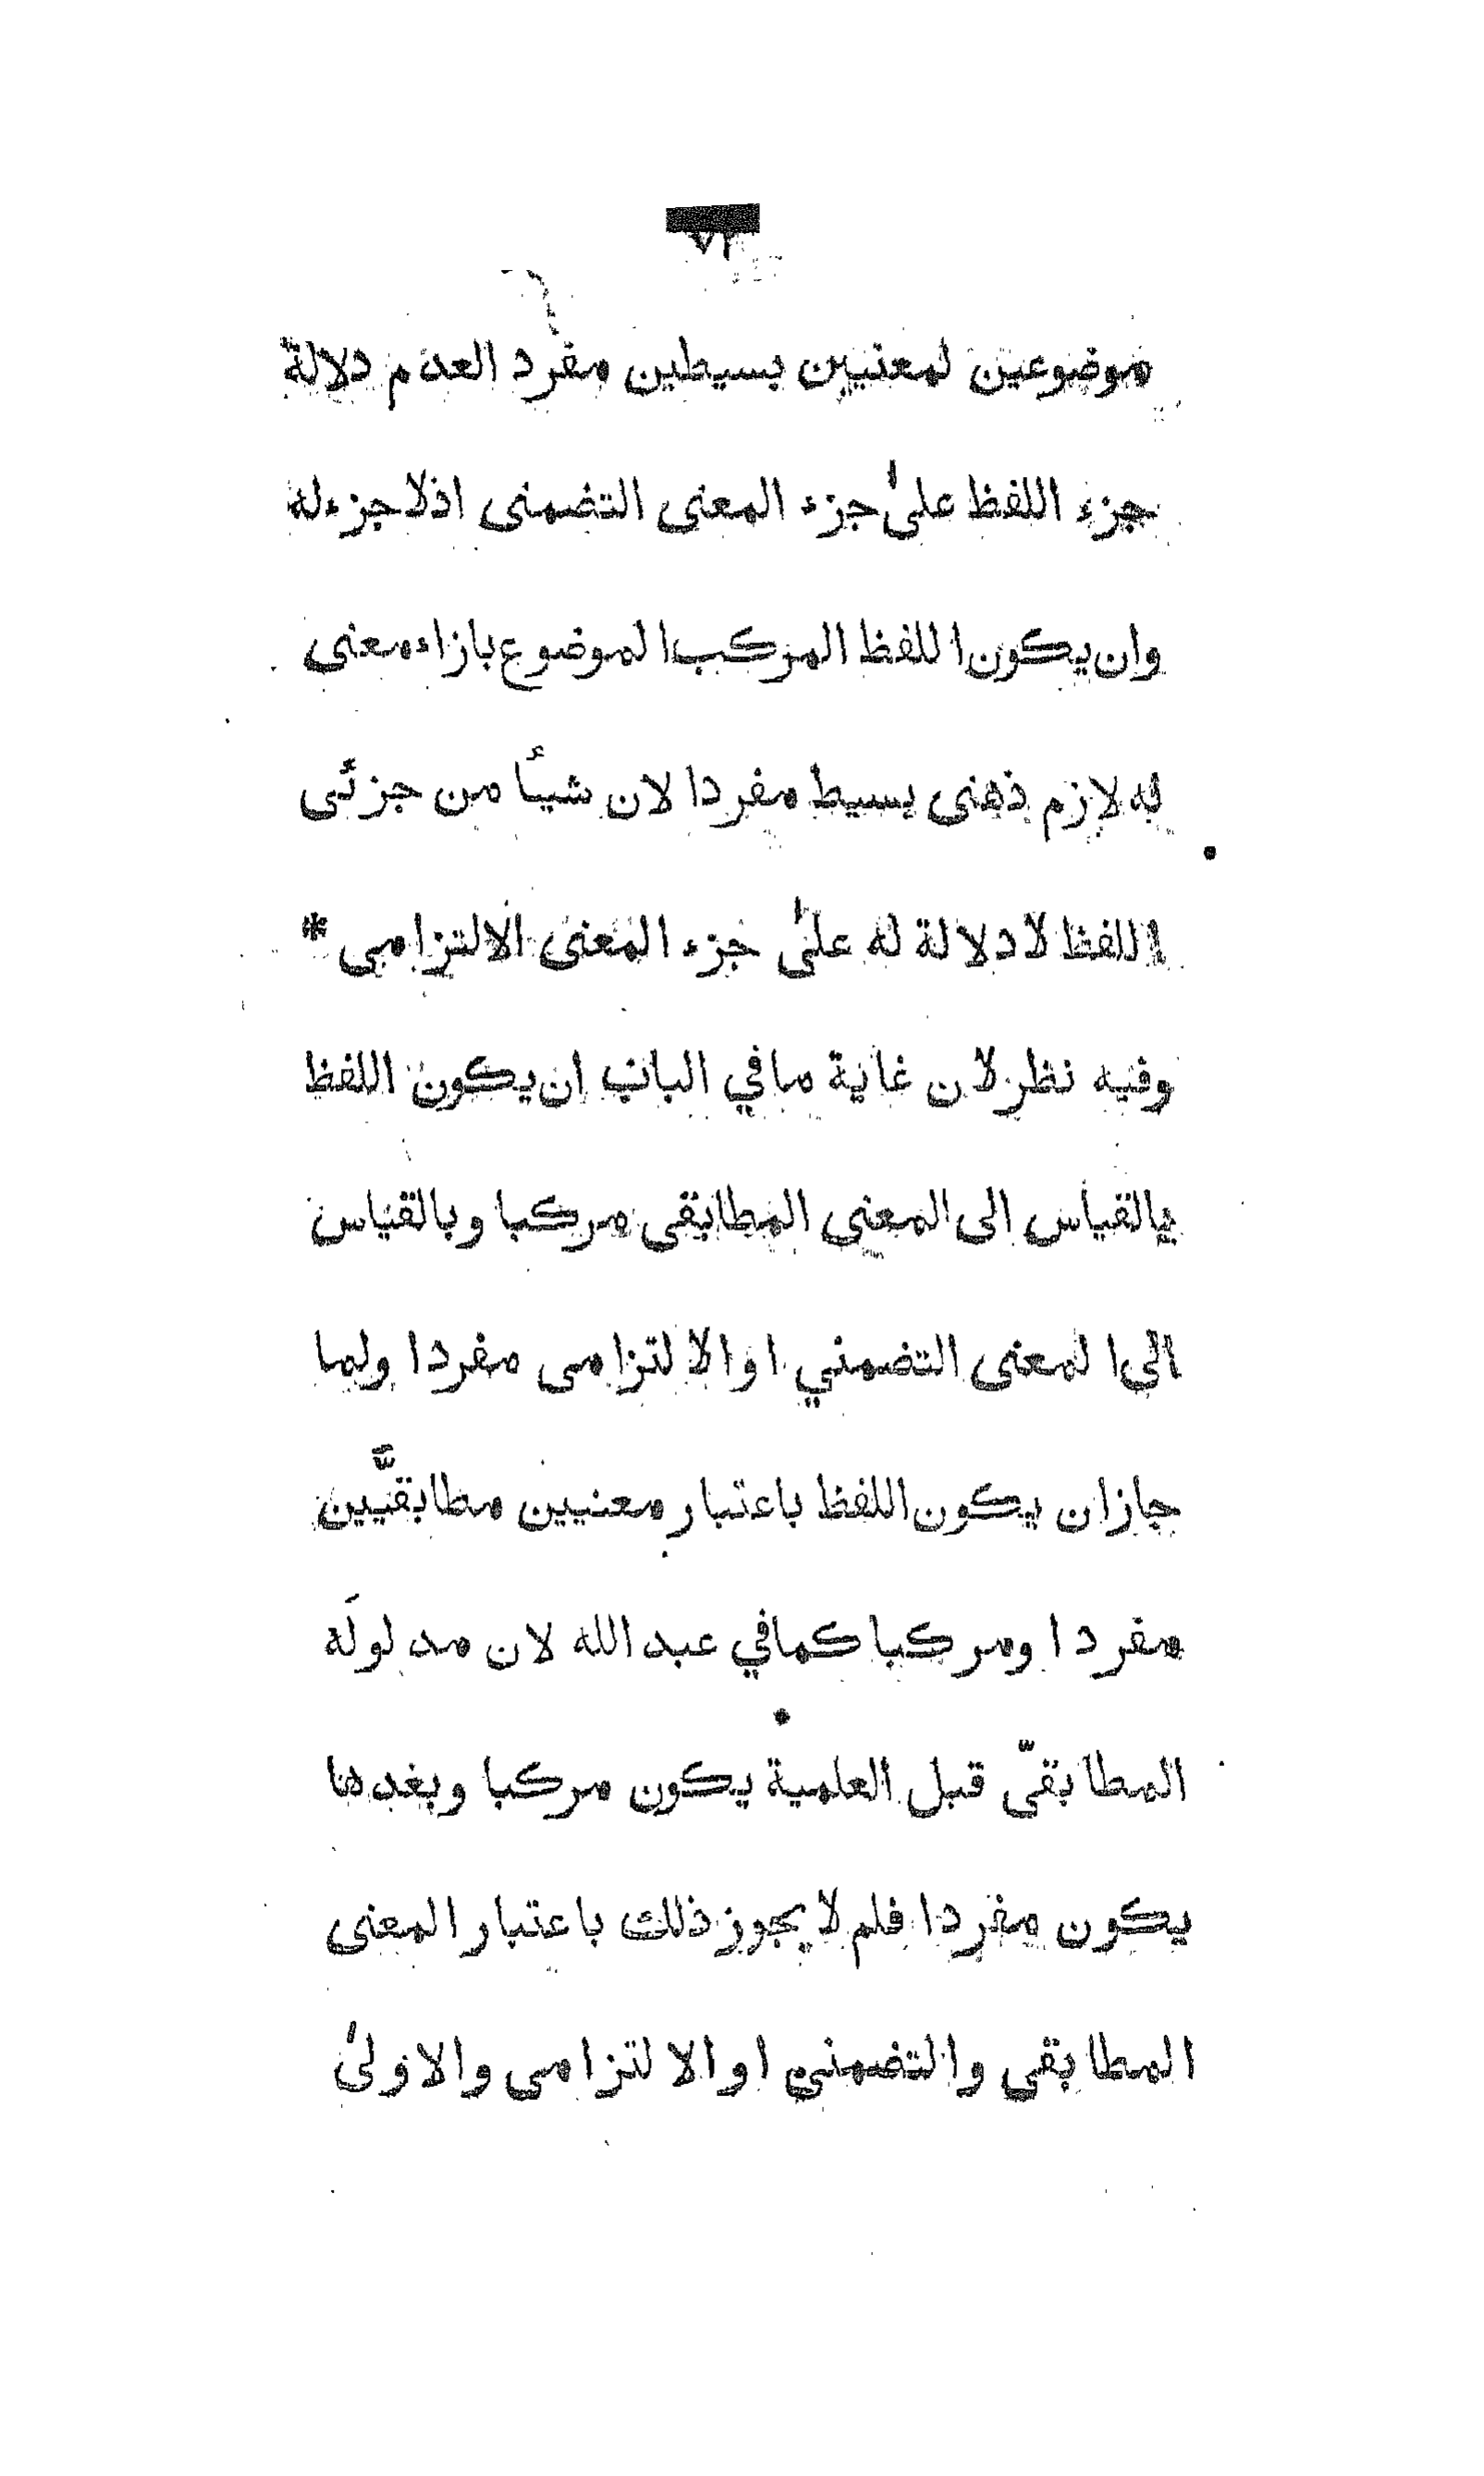 موضوعين لمعنيين بسيطين مفردا لعدم دلالة
جزء اللفظ على جزء المعنى التضمنى اذلا جزءله
وان يكون اللفظ المركب الموضوع بازاء معنى
له لازم ذهنى بسيط مفردا لان شيأ من جزئى
اللفظ لا دلالة له على جزء المعنى الالتزامى *
وفيه نظر لان غاية مافي الباب ان يكون اللفظ
بالقياس الى المعنى المطابقى مركبا وبالقياس
الى المعنى التضمني اوالالتزامى مفردا ولما
جازان يكون اللفظ باعتبار معنيين مطابقيَّين
مفردا ومركبا كمافي عبد الله لان مدلولَه
المطابقىّ قبل العلمية يكون مركبا وبعدها
يكون مفردا فلم لا يجوز ذلك باعتبار المعنى
المطابقى والتضمني اوالالتزامى والاولى